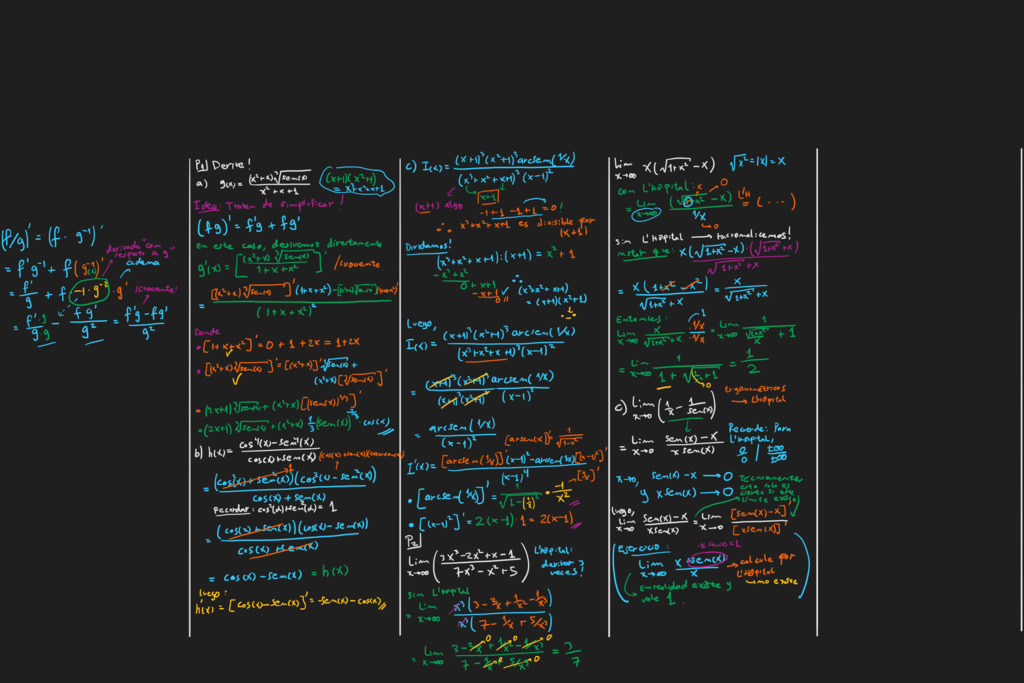 (f/g)' = (f · g⁻¹)'
= f'g⁻¹ + f(g⁻¹(x))'
derivada "com respecto a g"
cadena
= f'/g + f · -1·g⁻² · g'
¡coherente!
= f'·g/g·g - fg'/g² = f'g - fg'/g²
P1] Derive!
a) g(x) = (x²+x)∛sen(x) / x²+x+1
(x+1)(x²+1) = x³+x²+x+1
Idea: Traten de simplificar!
(fg)' = f'g + fg'
En este caso, derivemos directamente
g'(x) = [(x²+x)∛sen(x) / 1+x+x²]' /cuociente
= [(x²+x)∛sen(x)]'(1+x+x²) - [(x²+x)∛sen(x)](1+x+x²)' / (1+x+x²)²
Donde
• [1+x+x²]' = 0+1+2x = 1+2x
• [(x²+x)∛sen(x)]' = [(x²+x)]'∛sen(x) +
(x²+x)[∛sen(x)]'
= (2x+1)∛sen(x) + (x²+x)[(sen(x))^(1/3)]'
= (2x+1)∛sen(x) + (x²+x) 1/3 (sen(x))^(-2/3) · cos(x)
b) h(x) = cos⁴(x) - sen⁴(x) / cos(x)+sen(x)
= (cos²(x)+sen²(x))(cos²(x)-sen²(x)) / cos(x)+sen(x)
Recordar: cos²(α)+sen²(α) = 1
= (cos(x)+sen(x))(cos(x)-sen(x)) / cos(x)+sen(x)
= cos(x)-sen(x) = h(x)
luego:
h'(x) = [cos(x)-sen(x)]' = -sen(x)-cos(x)
c) I(x) = (x+1)³(x²+1)³arcsen(1/x) / (x³+x²+x+1)³(x-1)²
(x+1) algo
x=-1
-1+1-1+1 = 0!
∴ x³+x²+x+1 es divisible por
(x+1)
Dividamos!
(x³+x²+x+1):(x+1) = x²+1
-x³+x²
0+x+1
-x+1
0//
∴ (x³+x²+x+1)
= (x+1)(x²+1)
luego,
I(x) = (x+1)³(x²+1)³arcsen(1/x) / (x³+x²+x+1)³(x-1)²
= (x+1)³(x²+1)³arcsen(1/x) / (x+1)³(x²+1)³ (x-1)²
= arcsen(1/x) / (x-1)²
[arcsen(x)]' = 1/√(1-x²)
I'(x) = [arcsen(1/x)]'(x-1)² - arcsen(1/x)[(x-1)²]' / (x-1)⁴
• [arcsen(1/x)]' = 1/√(1-(1/x)²) · -1/x²
[1/x]'
• [(x-1)²]' = 2(x-1)·1 = 2(x-1)
P2]
Lim x→∞ (3x³-2x²+x-1 / 7x³-x²+5)
L'Hôpital:
derivar 3
veces!
sim L'Hopital
= Lim x→∞ x³(3-2/x+1/x²-1/x³) / x³(7-1/x+5/x³)
= Lim x→∞ 3-2/x+1/x²-1/x³ / 7-1/x+5/x³ = 3/7
Lim x→∞ x(√(1+x²) - x) √x² = |x| = x
com L'Hôpital:
= Lim x→∞ (√(1+x²) - x) / 1/x L'H = (····)
sim L'Hôpital → racionalicemos!
notar que: x(√(1+x²)-x)·(√(1+x²)+x) / √(1+x²)+x
= x(1+x²-x²) / √(1+x²)+x = x / √(1+x²)+x
Entonces:
Lim x→∞ x / √(1+x²)+x · 1/x / 1/x = Lim x→∞ 1 / √(1+x²)/x + 1
= Lim x→∞ 1 / 1+√(1/x²+1) = 1/2
c) Lim x→0 (1/x - 1/sen(x))
trigonométricos
→ L'Hôpital
= Lim x→0 sen(x)-x / x sen(x)
Recuerde: Para
L'Hôpital,
0/0 | ±∞/±∞
x→0, sen(x)-x → 0
y x sen(x) → 0
Tecnicamente
esto solo es
cierto si este
límite existe
luego,
Lim x→0 sen(x)-x / x sen(x) = Lim x→0 [sen(x)-x]' / [x sen(x)]'
Ejercicio:
Lim x→∞ x+sen(x) / x → calcule por
L'Hôpital
→ no existe
En realidad existe y
vale 1.